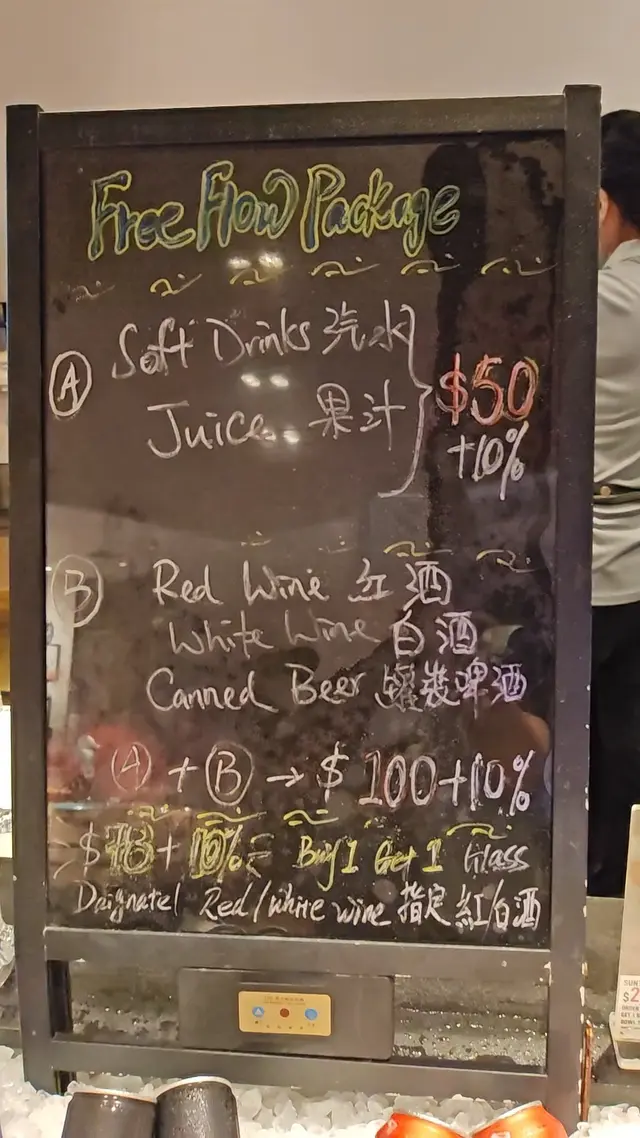 Free Flow Package
A Soft Drinks 汽水
Juice 果汁
$50
+10%
B Red Wine 紅酒
White Wine 白酒
Canned Beer 罐裝啤酒
A + B → $ 100+10%
$78+10% Buy 1 Get 1 Glass
Red/white wine 指定 紅/白酒
SUN
$2